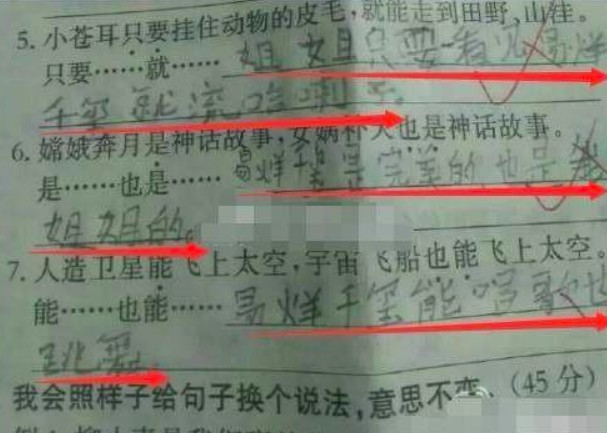 5. 小苍耳只要挂住动物的皮毛,就能走到田野、山洼。
只要……就…… 姐姐只要一看见易烊
千玺就流哈喇子。
6. 嫦娥奔月是神话故事,女娲补天也是神话故事。
是……也是…… 易烊千玺是完美的也是我
姐姐的。
7. 人造卫星能飞上太空,宇宙飞船也能飞上太空。
能……也能…… 易烊千玺能唱歌也
跳舞
我会照样子给句子换个说法,意思不变。(45分)